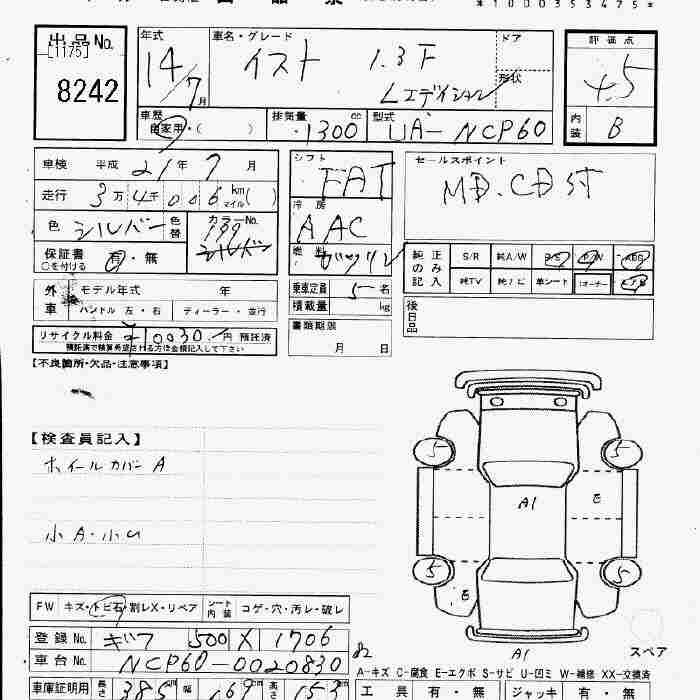 *1000353475*
出品No.
[1175]
8242
年式
14/7月
車名・グレード
イスト 1.3F
Lエディション
ドア
形状
評価点
4.5
内装
B
車歴
自家用・( )
排気量
1300cc
型式
UA-NCP60
車検 平成 21年 7月
走行 3万4千006km マイル( )
色 シルバー 色替
カラーNo.
199
シルバー
保証書 有・無
○を付ける
シフト
FAT
冷房
AAC
燃料
ガソリン
セールスポイント
MD.CD付
純正のみ記入
S/R 純A/W P/S P/W ABS
純TV 純ナビ 革シート
外車
モデル年式 年
ハンドル 左・右 ディーラー・並行
乗車定員 5名
積載量 kg
後日品
リサイクル料金 ¥10030.-円 預託済
預託済で精算希望される方は金額記入して下さい
書類期限
月 日
【不良箇所・欠品・注意事項】
【検査員記入】
ホイールカバーA
小A・小U
5 5
A1 E
5 5
E
A1
スペア
FW キズ・トビ石・割レX・リペア シート内装 コゲ・穴・汚レ・破レ
登録No. ギフ 500 X 1706
車台No. NCP60-0020830
82
A-キズ C-腐食 E-エクボ S-サビ U-凹ミ W-補修 XX-交換済
車庫証明用 長さ 385cm 幅 169cm 高さ 153cm
工具 有・無 ジャッキ 有・無